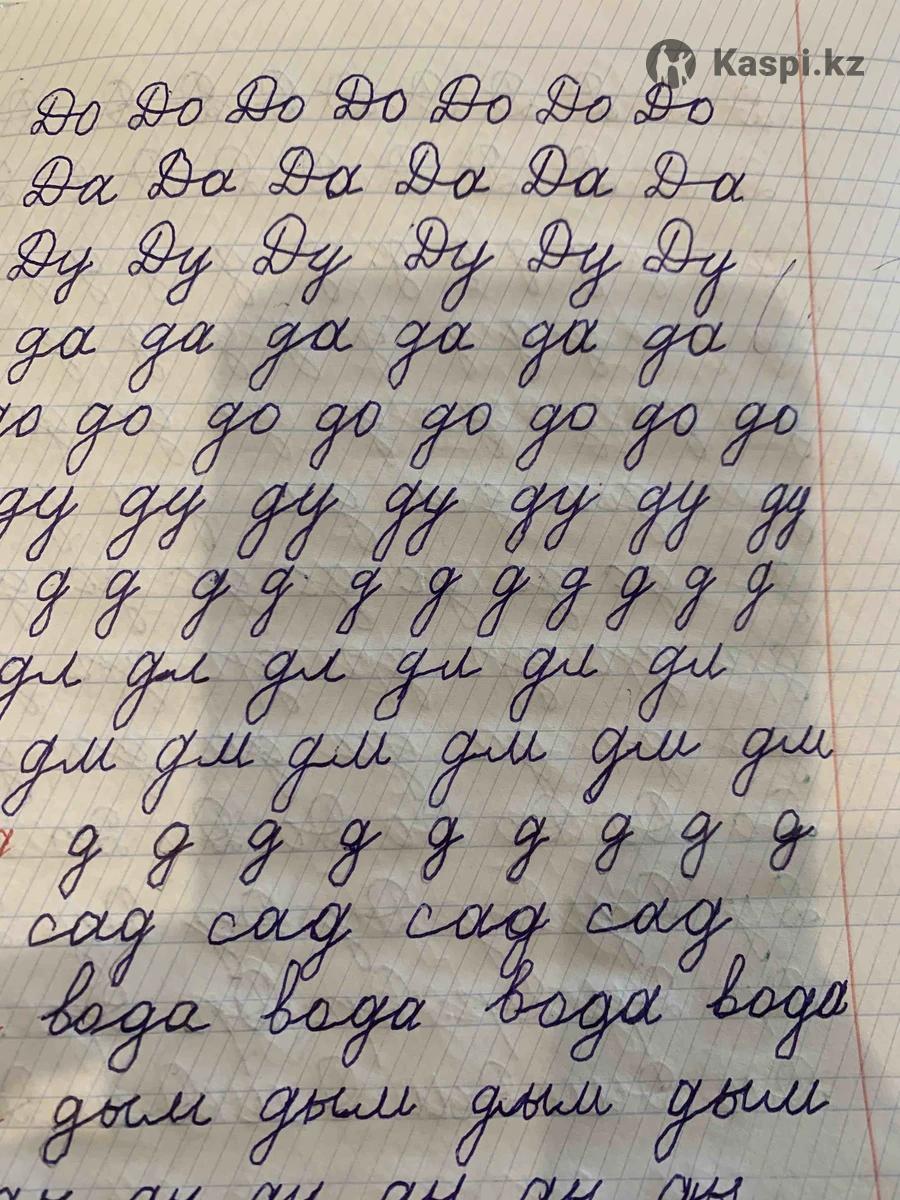 Kaspi.kz
До До До До До До До
Да Да Да Да Да Да
Ду Ду Ду Ду Ду Ду
да да да да да да
до до до до до до до до
ду ду ду ду ду ду ду
д д д д д д д д д д д
дл дл дл дл дл дл
дм дм дм дм дм дм
д д д д д д д д д
сад сад сад сад
вода вода вода вода
дым дым дым дым